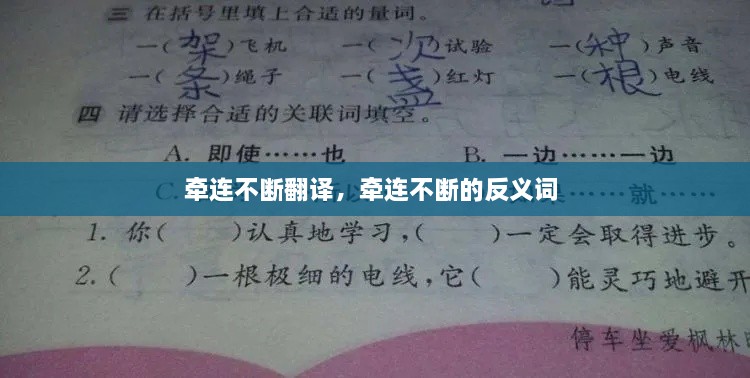 三 在括号里填上合适的量词。
一(架)飞机 一(次)试验 一(种)声音
一(条)绳子 一(盏)红灯 一(根)电线
四 请选择合适的关联词填空。
A. 即使……也 B. 一边……一边
牵连不断翻译，牵连不断的反义词
……就……
1. 你( )认真地学习,( )一定会取得进步。
2.( )一根极细的电线,它( )能灵巧地避开
停车坐爱枫林